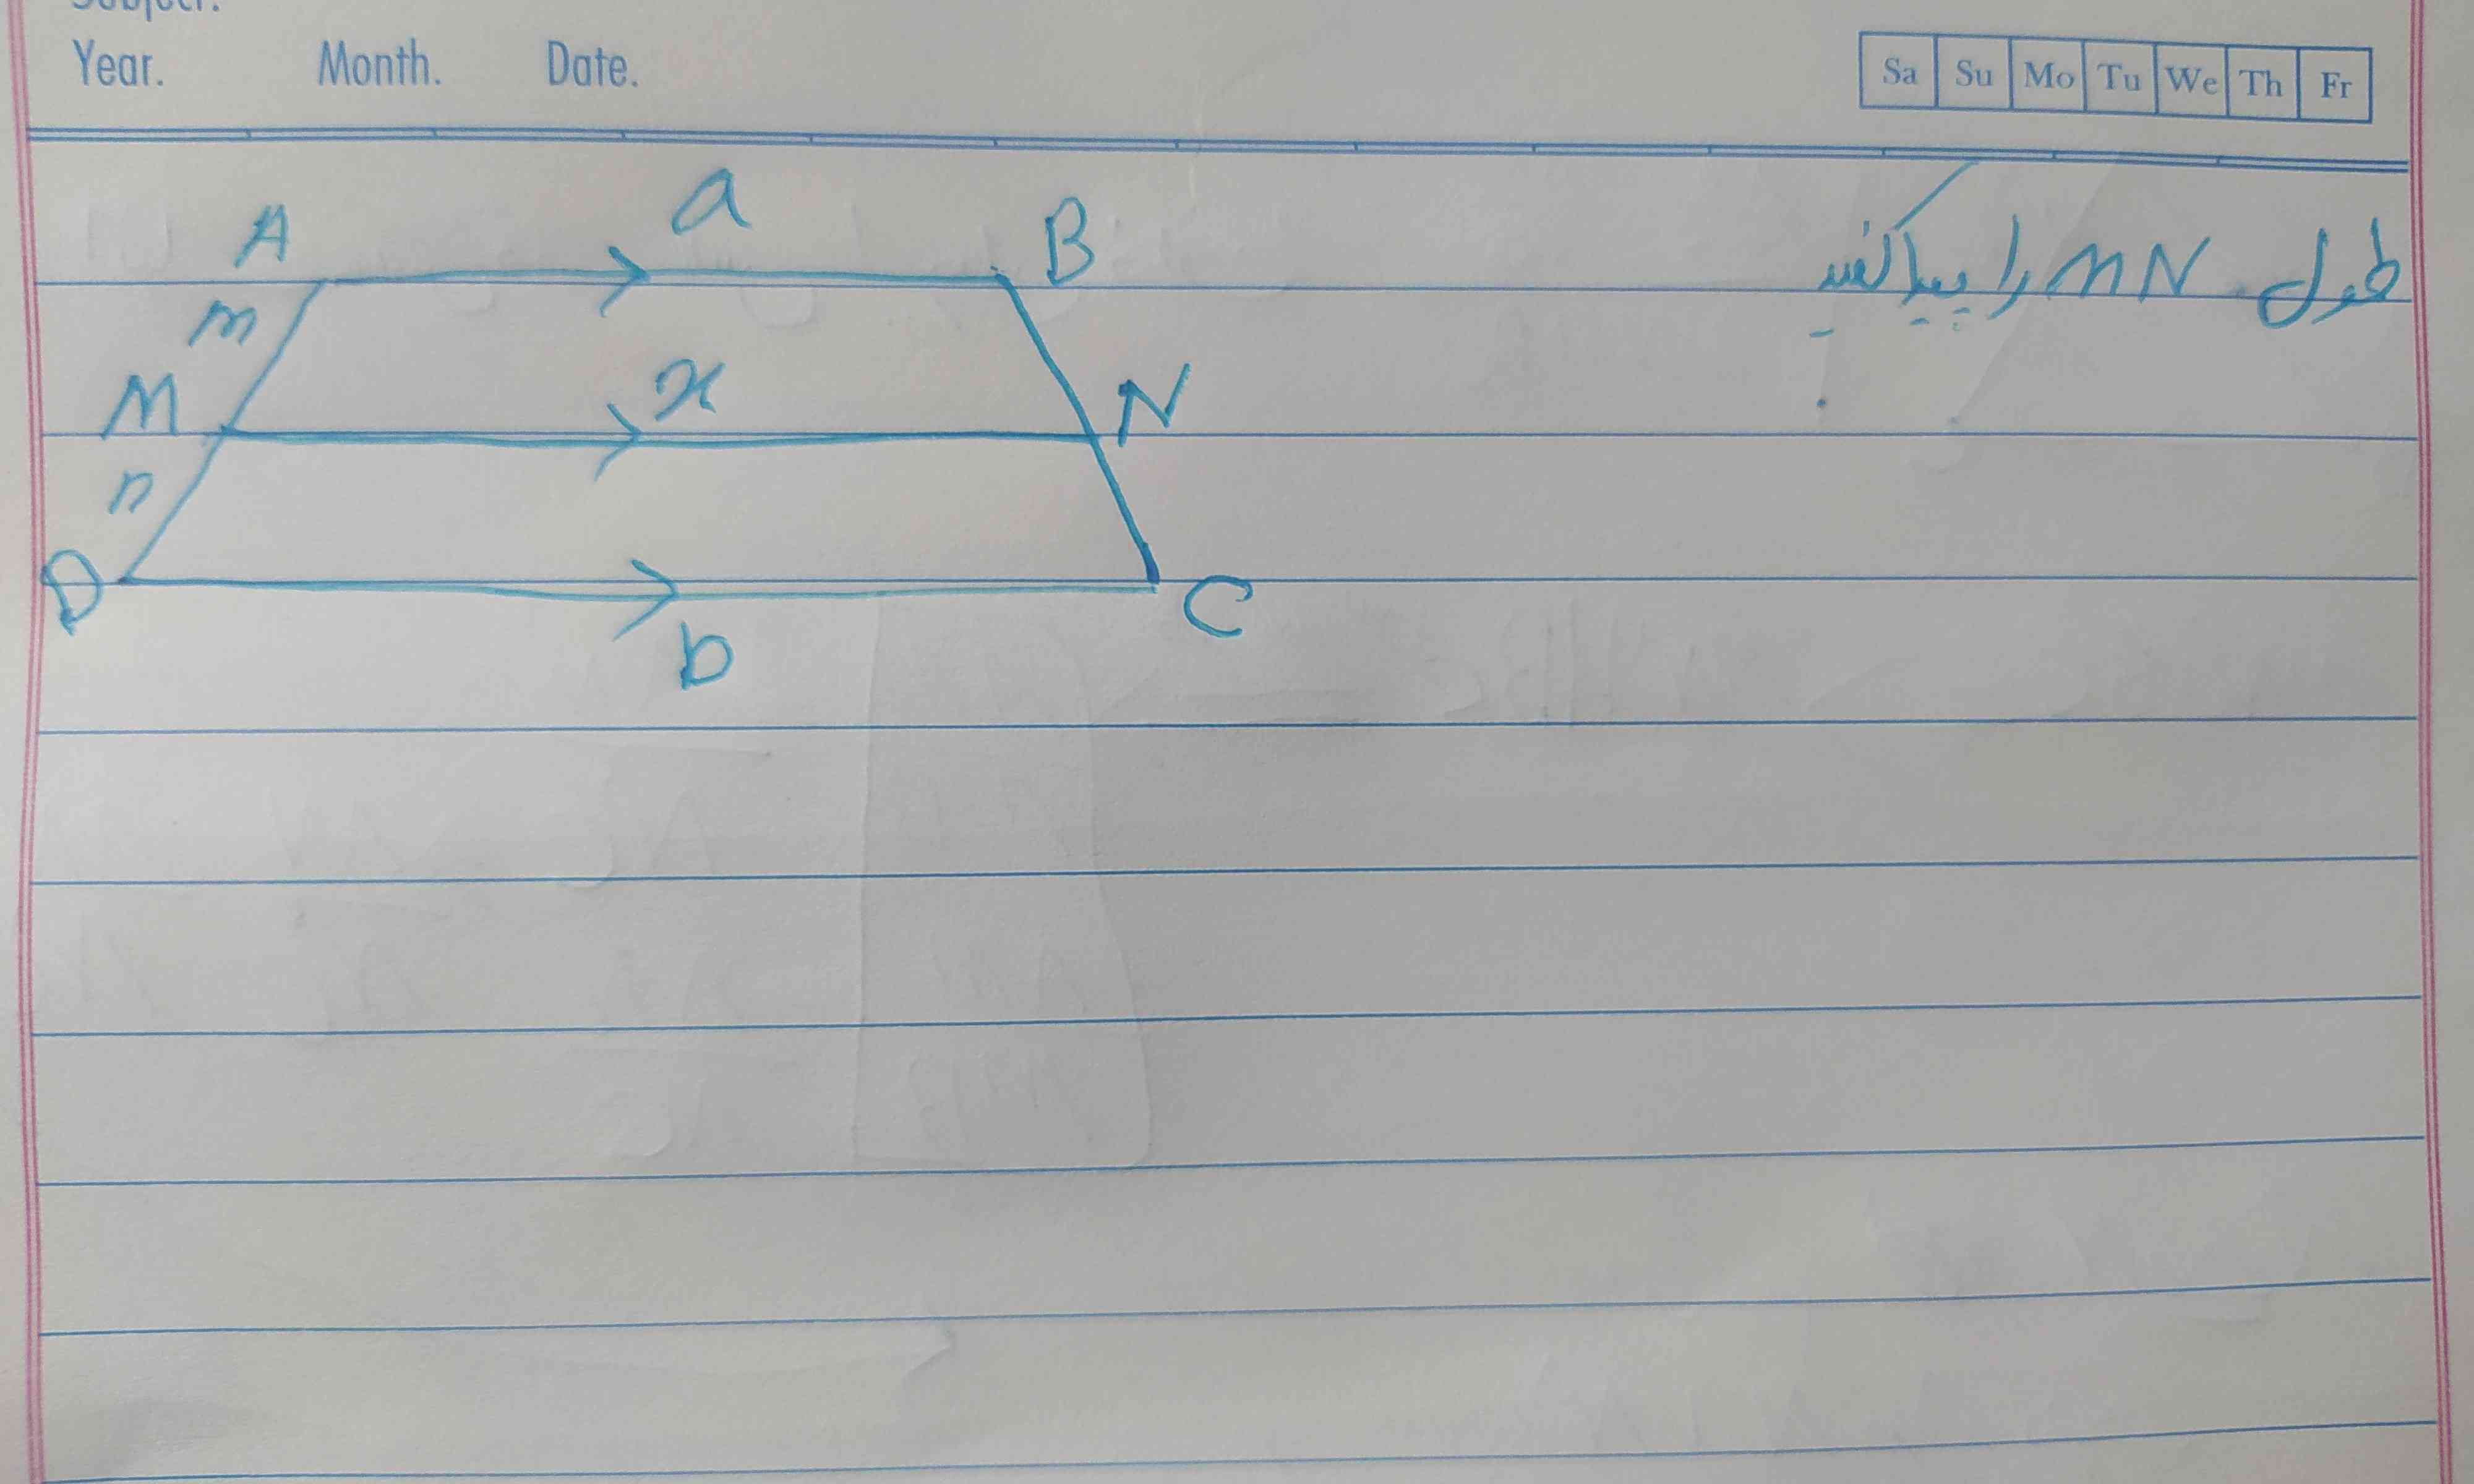 Subject.
Year. Month. Date.
Sa Su Mo Tu We Th Fr
طول MN را پیدا کنید
a
A B
m
x
M N
n
D C
b